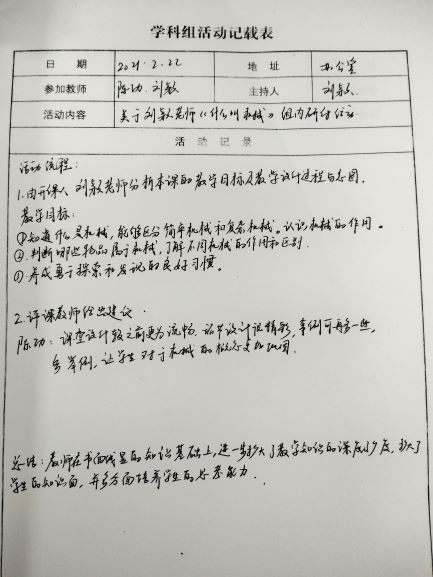 学科组活动记载表
日期 2021.2.22 地址 办公室
参加教师 陈功、刘毅 主持人 刘毅
活动内容 关于刘毅老师《什么叫机械》组内研讨活动
活动记录
活动流程：
1.由开课人刘毅老师分析本课的教学目标及教学设计过程与意图.
教学目标：
①知道什么是机械，能够区分简单机械和复杂机械。认识机械的作用。
②.判断哪些物品属于机械，了解不同机械的作用和区别.
③.养成勇于探索和发现的良好习惯。
2.评课教师给出建议.
陈功：课堂设计较之前更为流畅.环节设计很精彩，案例可再多一些，
多举例，让学生对于机械的概念更加巩固.
总结：教师在书面浅显的知识基础上，进一步扩大了教学知识的深度广度，扩大了
学生的知识面，并多方面培养学生的思考能力.